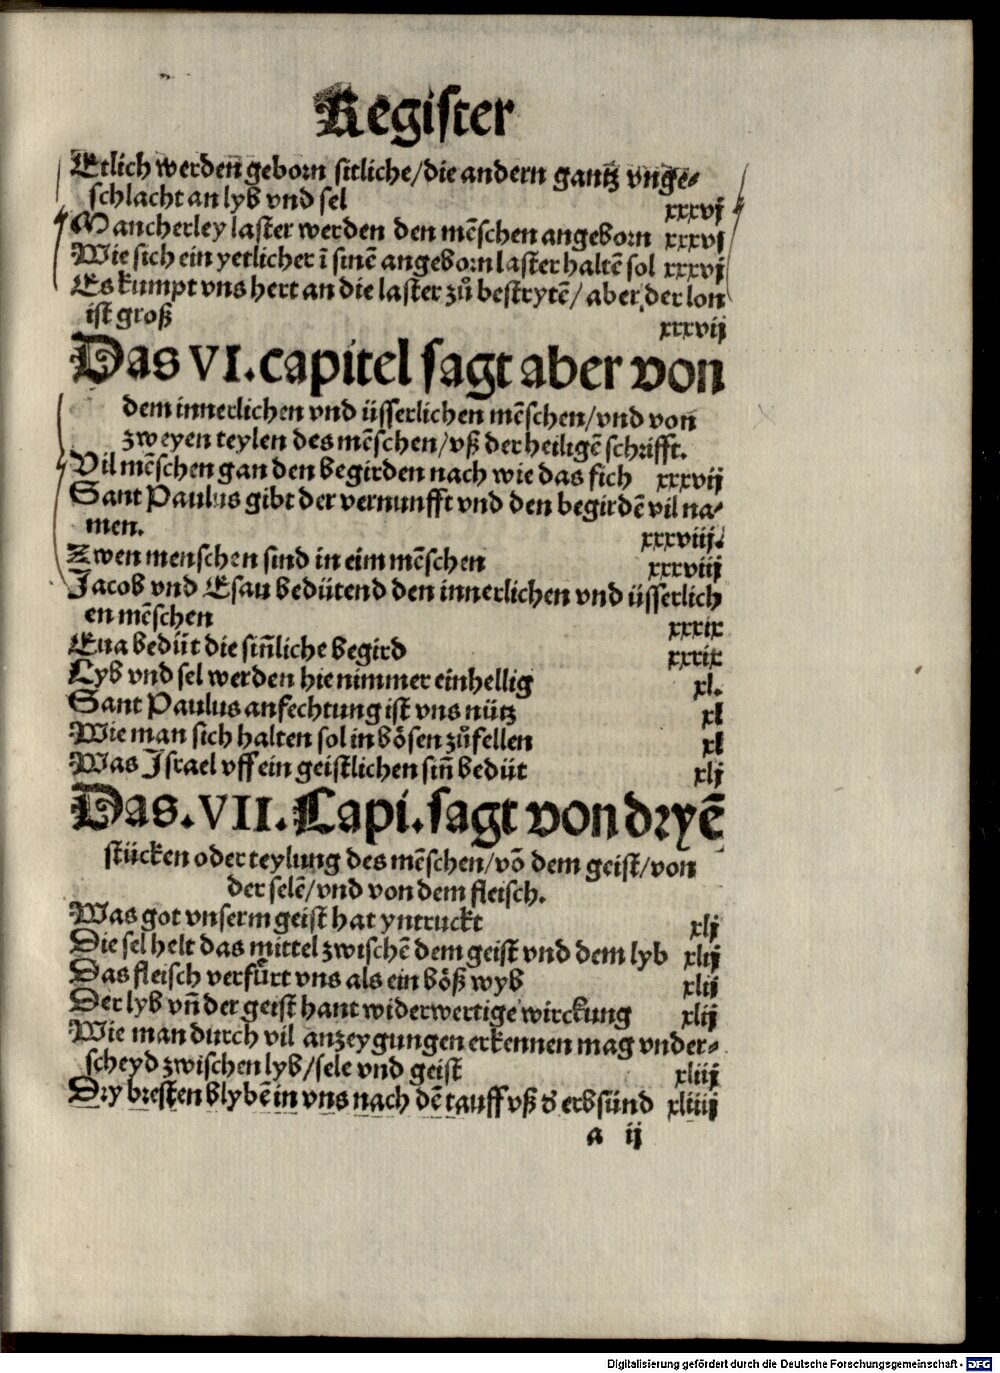 Register
Etlich werden geborn sitliche/die andern gantz vnge-
schlacht an lyb vnd sel xxxvj
Mancherley laster werden den mẽschen angeborn xxxvj
Wie sich ein yetlicher ĩ sinẽ angeborn laster haltẽ sol xxxvj
Es kumpt vns hert an die laster zů bestrytẽ/ aber der lon
ist groß xxxvij
Das VI. capitel sagt aber von
dem innerlichen vnd üsserlichen mẽschen/vnd von
zweyen teylen des mẽschen/vß der heiligẽ schrifft.
Vil mẽschen gan den begirden nach wie das fich xxxvij
Sant Paulus gibt der vernunfft vnd den begirdẽ vil na-
men. xxxviij.
Zwen menschen sind in eim mẽschen xxxviij
Jacob vnd Esau bedütend den innerlichen vnd üsserlich
en mẽschen xxxix
Eua bedüt die siñliche begird xxxix
Lyb vnd sel werden hie nimmer einhellig xl.
Sant Paulus anfechtung ist vns nütz xl
Wie man sich halten sol in bösen zůfellen xl
Was Israel vff ein geistlichen siñ bedüt xlj
Das. VII. Capi. sagt von dryẽ
stücken oder teylung des mẽschen/võ dem geist/von
der selẽ/vnd von dem fleisch.
Was got vnserm geist hat yntruckt xlj
Die sel helt das mittel zwischẽ dem geist vnd dem lyb xlij
Das fleisch verfůrt vns als ein böß wyb xlij
Der lyb vñ der geist hant widerwertige wirckung xlij
Wie man durch vil anzeygungen erkennen mag vnder-
scheyd zwischen lyb/sele vnd geist xliij
Dry bresten blybẽ in vns nach dẽ tauff vß d' erbsünd xliiij
a ij
Digitalisierung gefördert durch die Deutsche Forschungsgemeinschaft - DFG